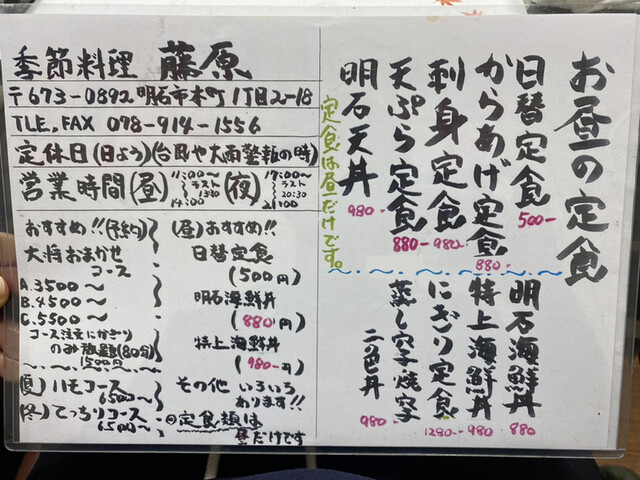 季節料理 藤原
〒673-0892 明石市本町1丁目2-18
TLE,FAX 078-914-1556
定休日(日よう)(台風や大雨警報の時)
営業時間(昼)11:00〜ラスト13:30 14:00 (夜)17:00〜ラスト20:30 21:00
おすすめ!!(予約)
大将おまかせ
コース
A.3500〜
B.4500〜
C.5500〜
コース注文にかぎり
のみ放題(80分)
1500円
(夏)ハモコース
6500〜
(冬)てっちりコース
6500〜
(昼)おすすめ!!
日替定食
(500円)
明石海鮮丼
(880円)
特上海鮮丼
(980円)
その他 いろいろ
あります!!
定食類は
昼だけです
お昼の定食
日替定食 500-
からあげ定食 880-
刺身定食 980-
天ぷら定食 880-
明石天丼 980-
定食は昼だけです。
明石海鮮丼 880
特上海鮮丼 980
にぎり定食 1280-
蒸し穴子焼穴子
二色丼 980